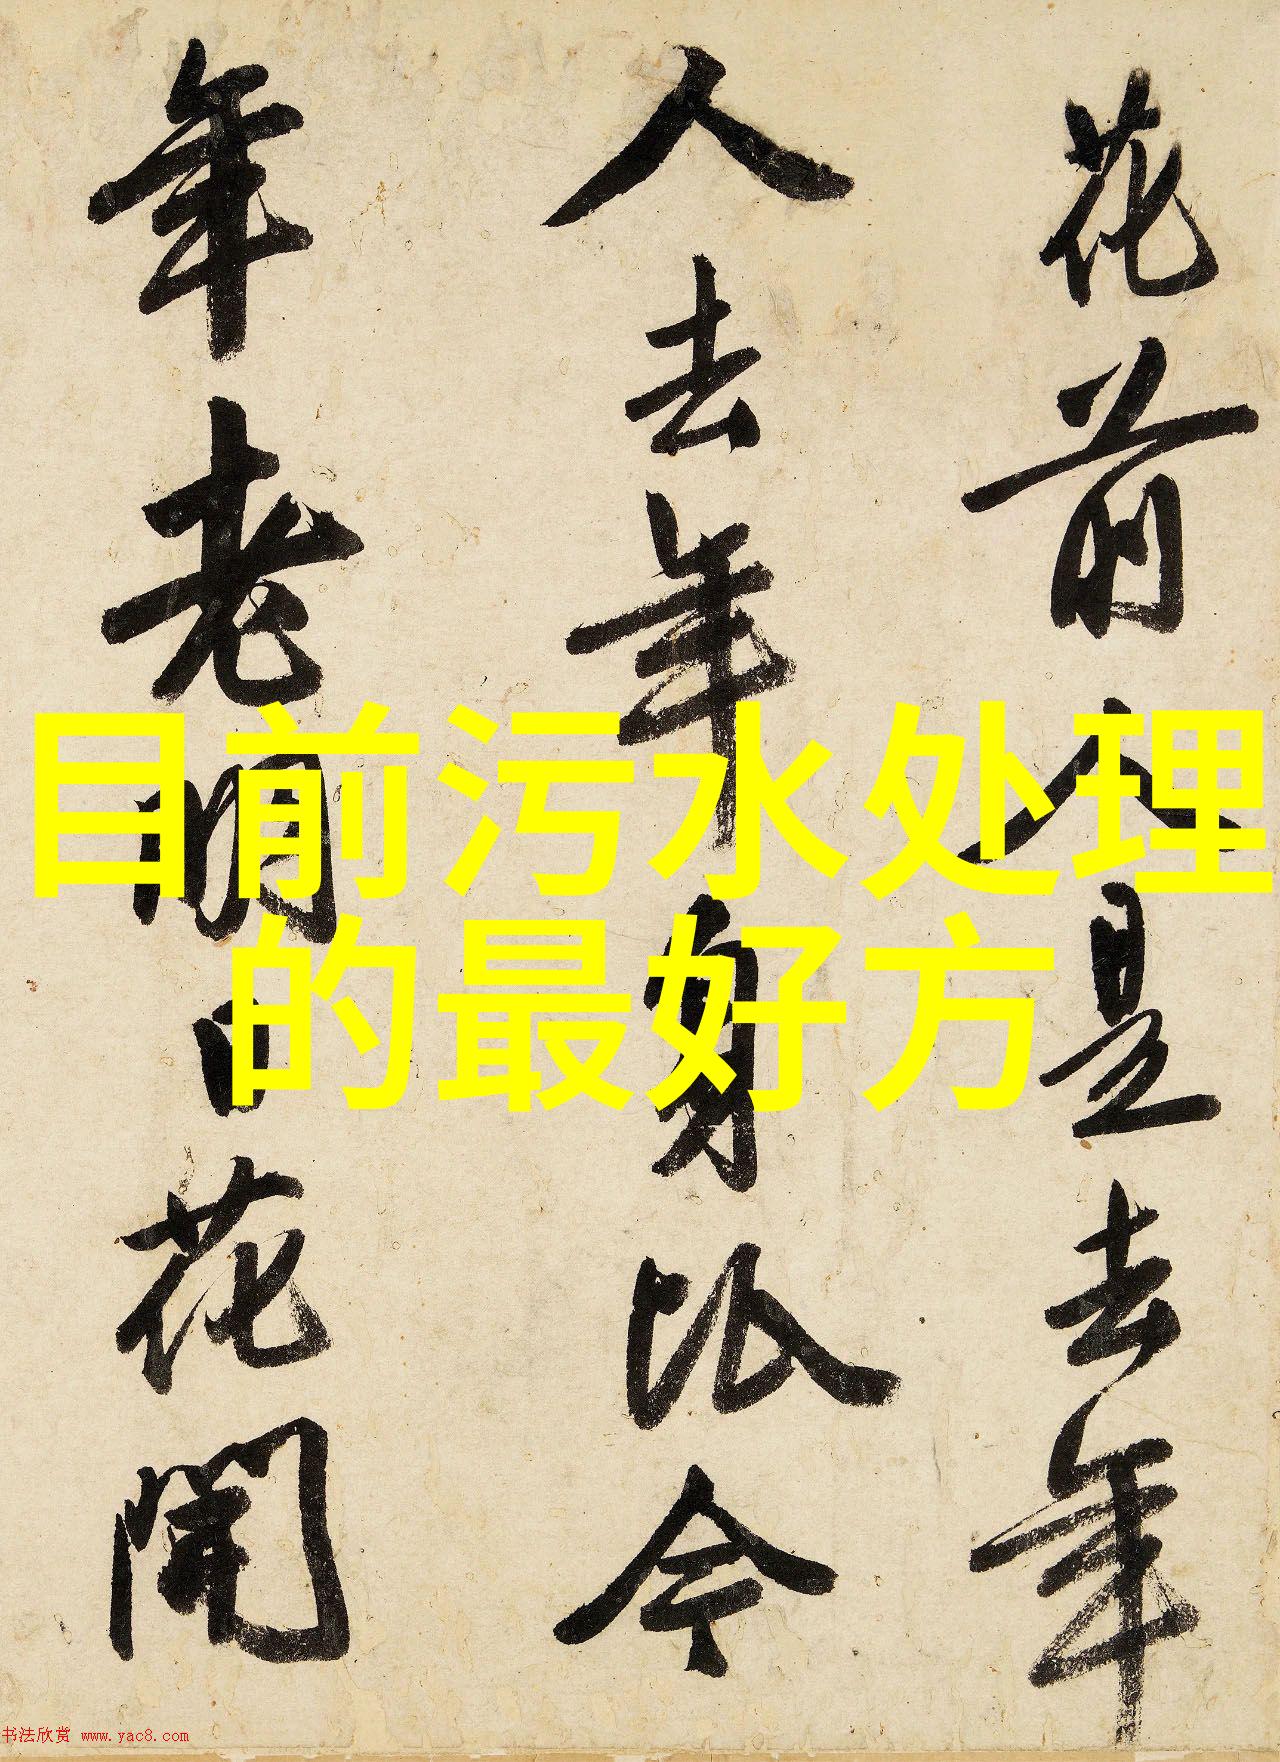 花前人是去年
人去年身比今
年老明日花開
目前污水处理
的最好方
书法欣赏 www.yac8.com